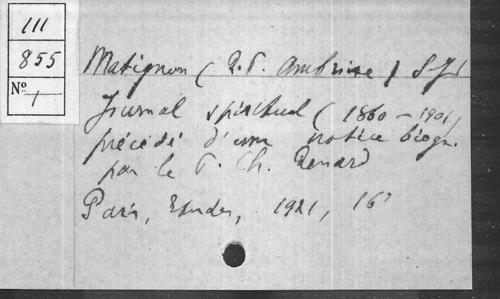 III
855
N° 1
Matignon (R. P. Ambroise) S.J.
Journal spirituel (1860-1901)
précédé d'une notice biogr.
par le P. Ch. Renard
Paris, Etudes, 1921, 16°